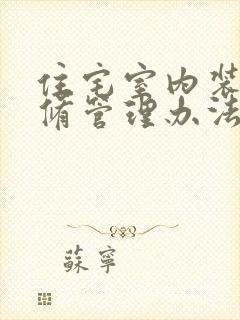 住宅室内装
脩管理办法
蘇寧